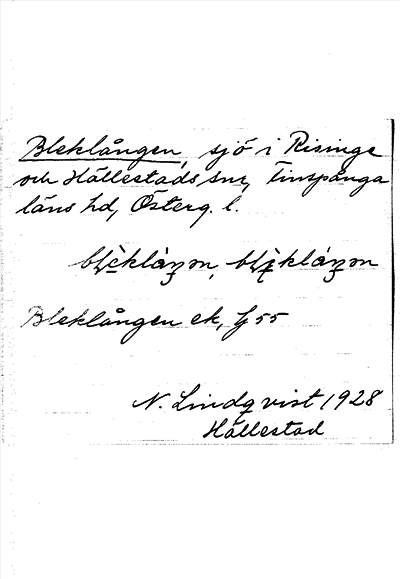 Bleklången, sjö i Risinge
och Hällestads snr, Finspånga
läns hd, Österg. l.
Bleklången ek, Gj 55
N. Lindqvist 1928
Hällestad